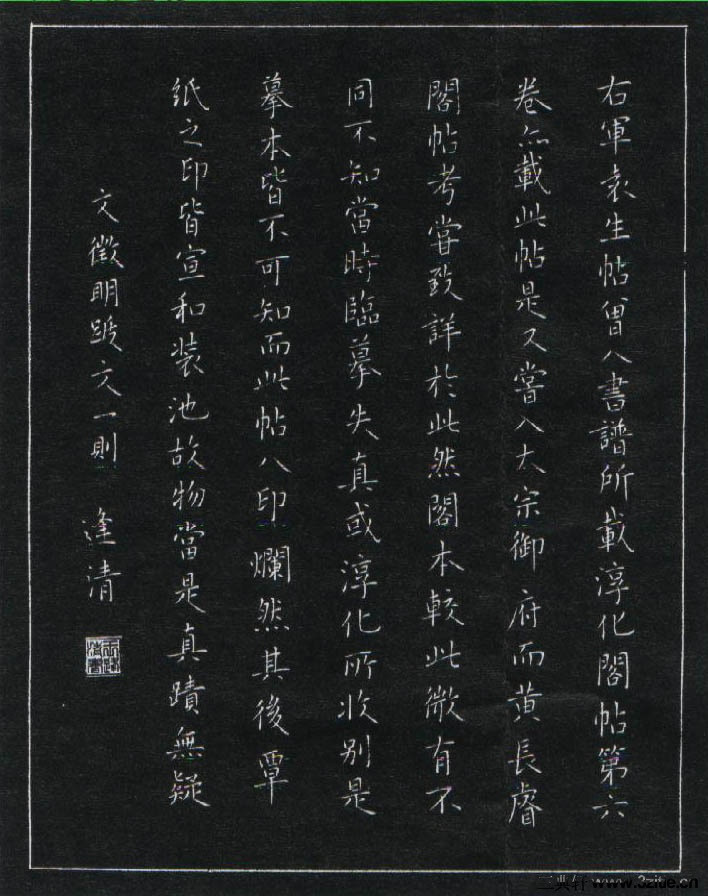 右軍袁生帖曾入書譜所載淳化閣帖第六
卷亦載此帖是又嘗入大宗御府而黄長睿
閣帖考嘗致詳於此然閣本較此微有不
同不知當時臨摹失真或淳化所收别是
摹本皆不可知而此帖八印爛然其後覃
紙之印皆宣和装池故物當是真蹟無疑
文徵明跋文一則 逢清
三典轩 www.3ziue.cn